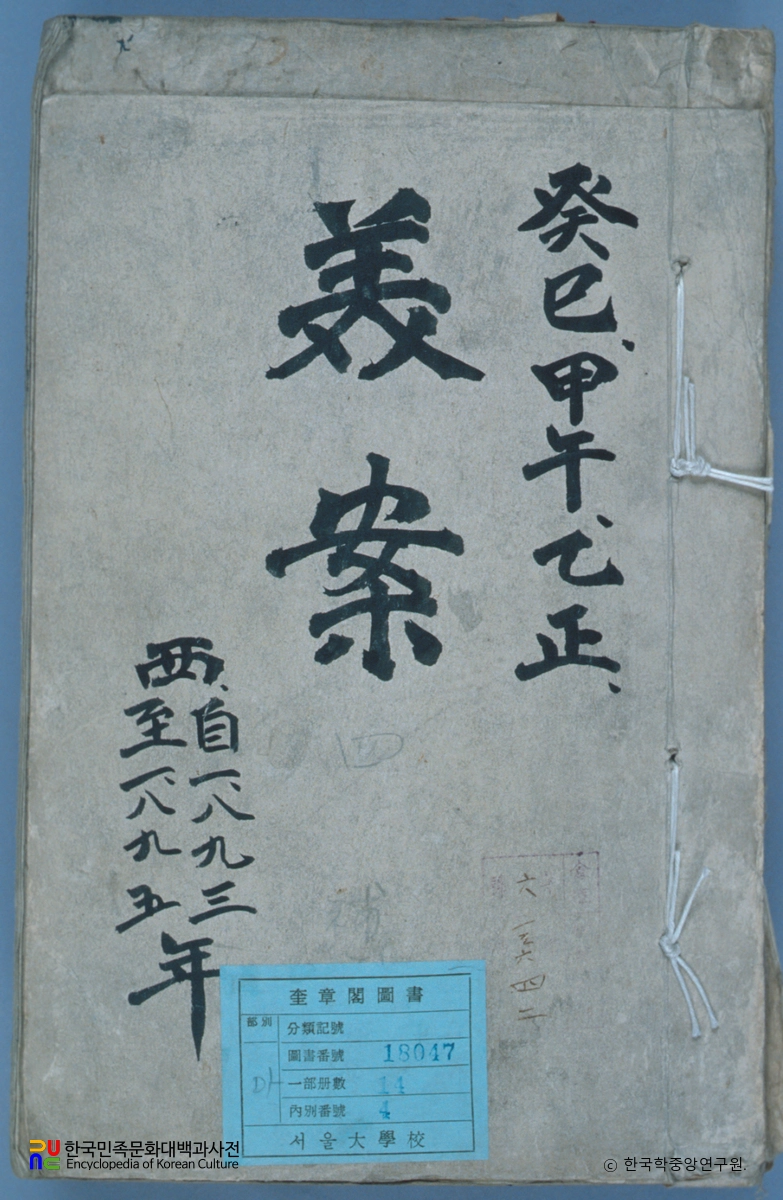 癸巳、甲午、乙正、
美案
西、自一、八九三
至一、八九五
年
四
六
四二
奎章閣圖書
部別
分類記號
圖書番號 18047
一部册數 14
內別番號 4
서울大學校
한국민족문화대백과사전
Encyclopedia of Korean Culture
ⓒ 한국학중앙연구원.